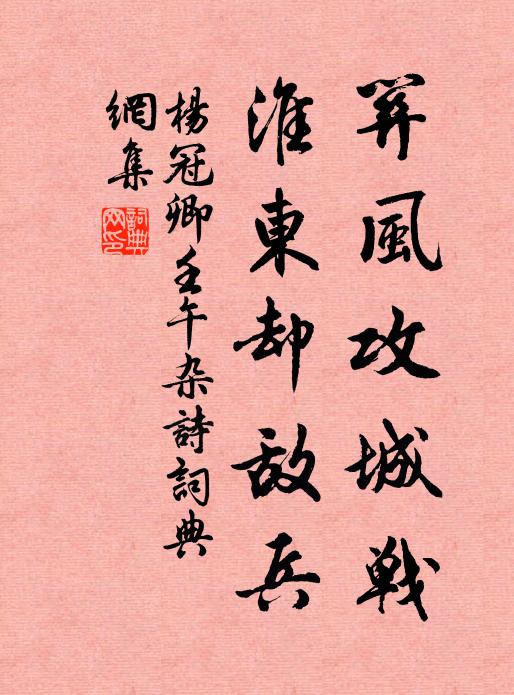 羿風攻城戦
淮東却敌兵
楊冠卿壬午杂詩詞典
網集
詞典网印